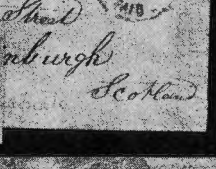 Street
nburgh
Scotland